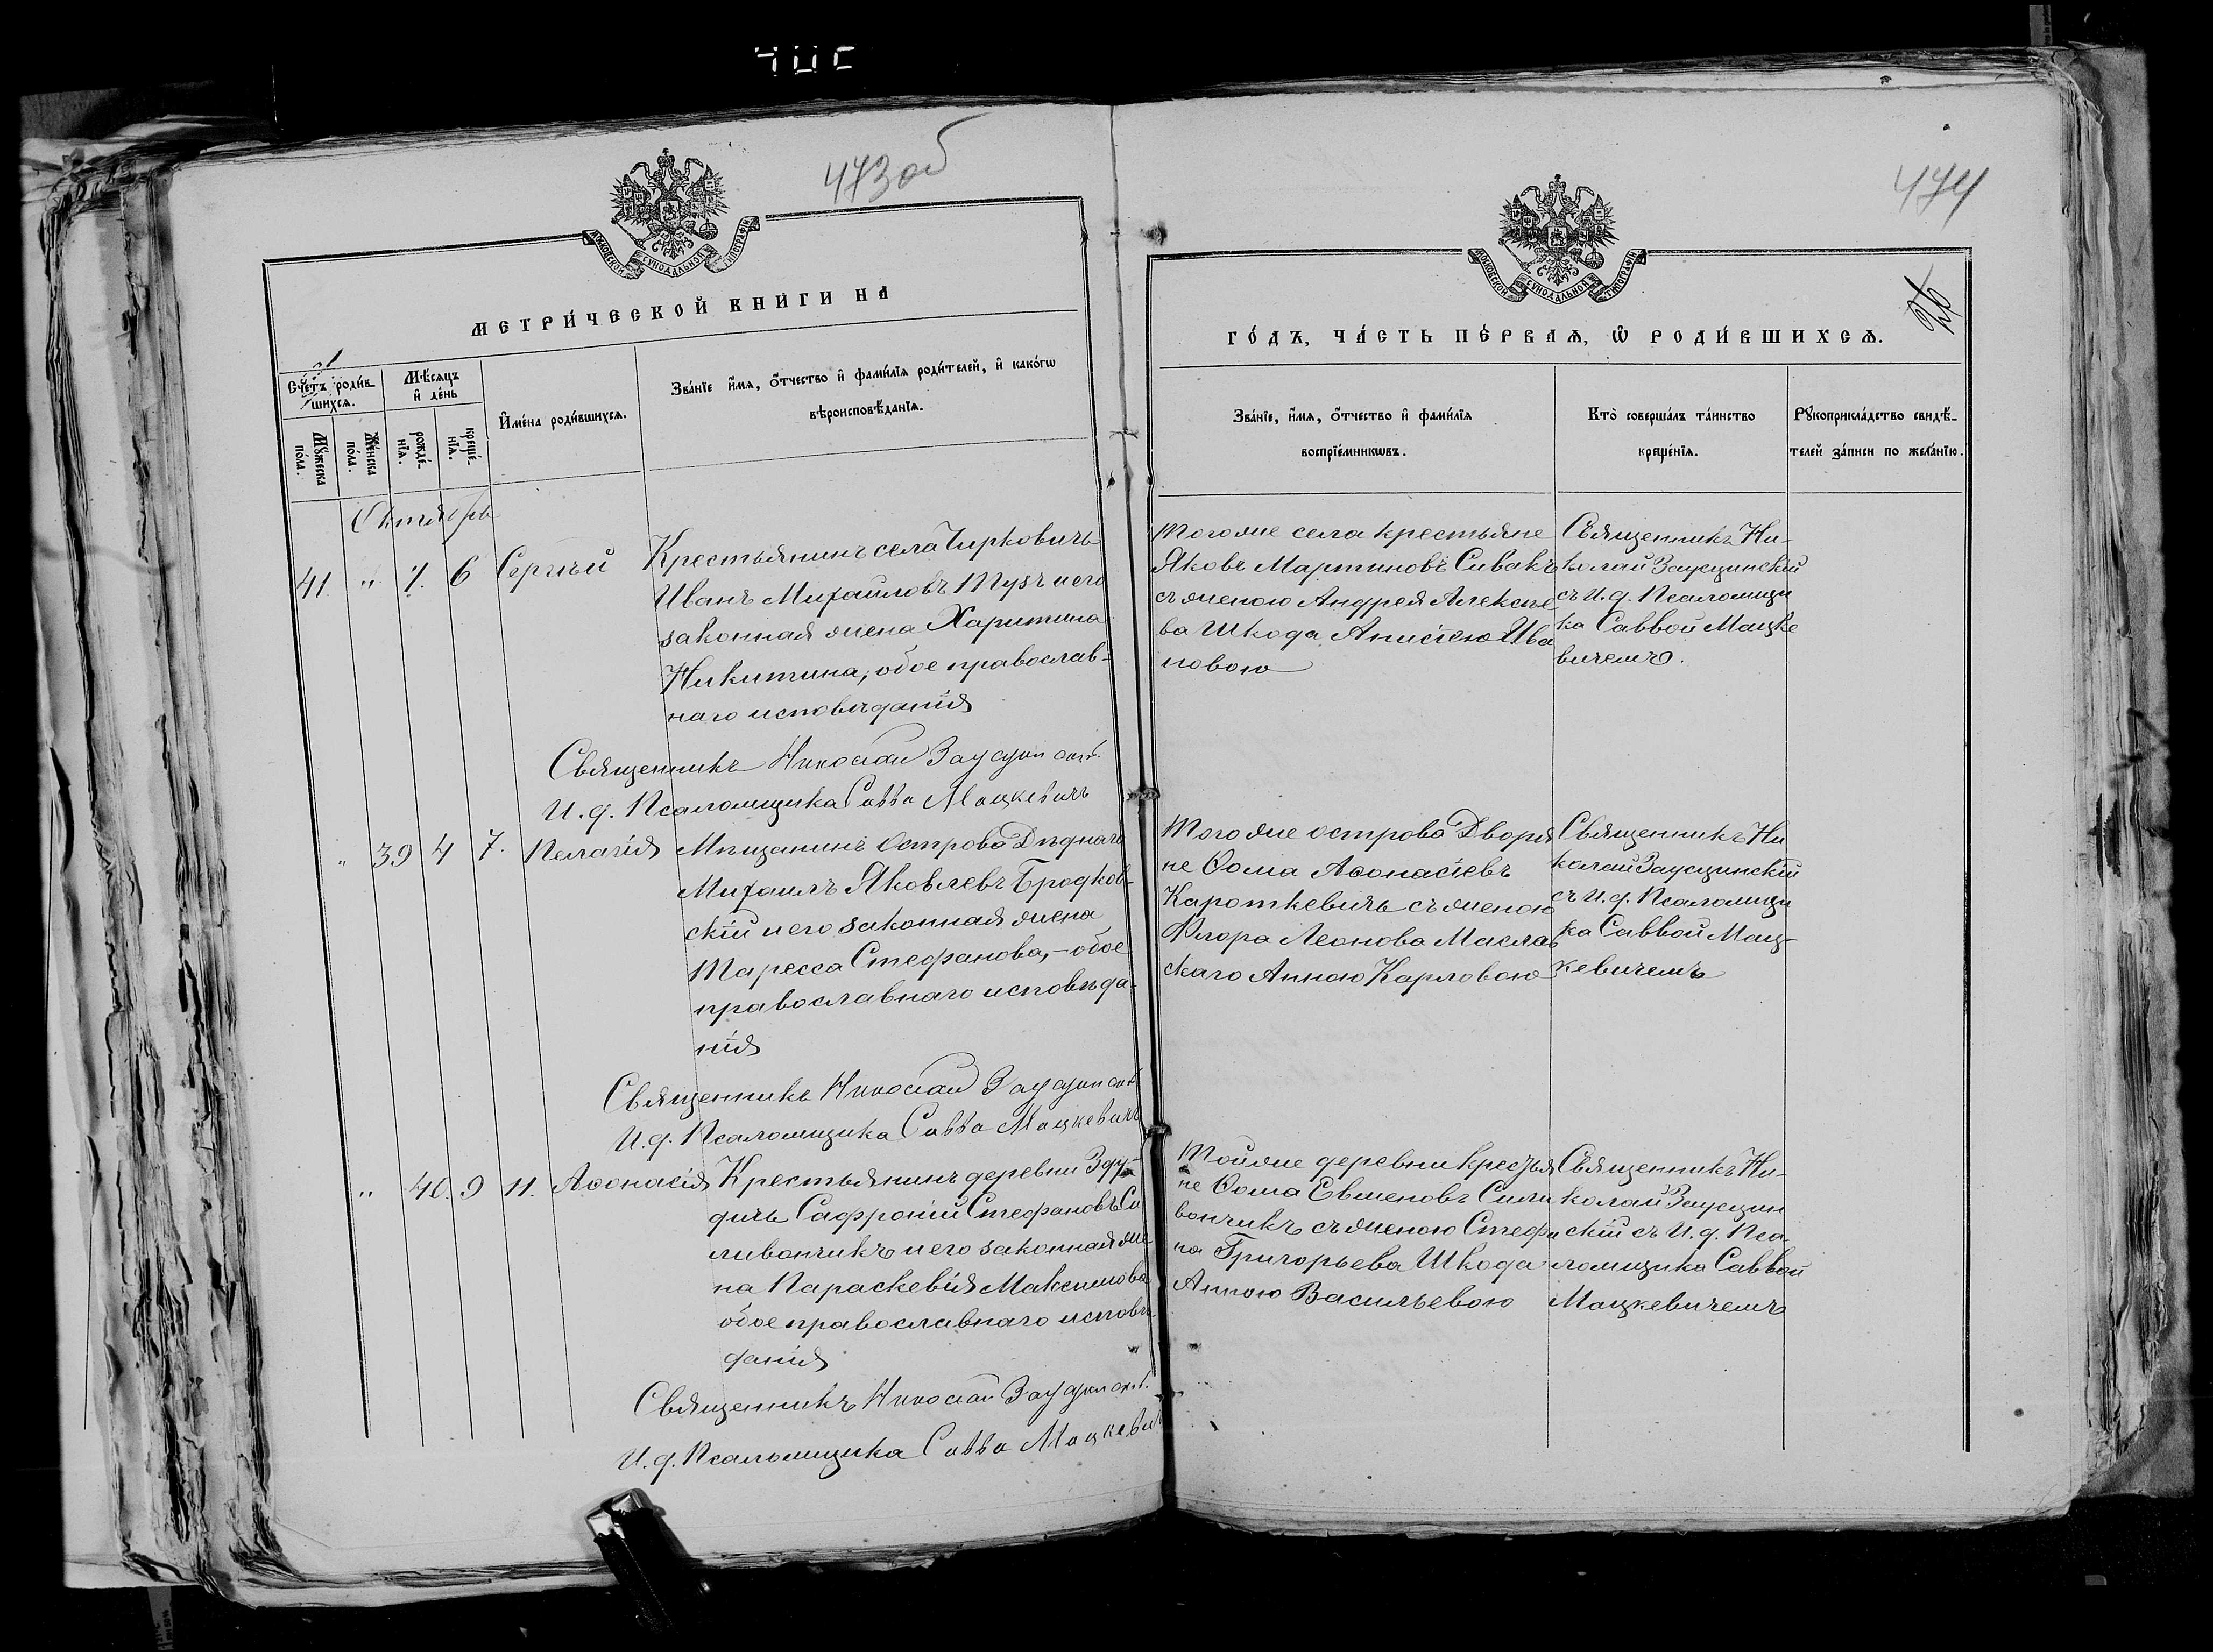 473 об
МОСКОВСКОЙ СѴНОДАЛЬНОЙ ТИПОГРАФІИ
МЕТРИ́ЧЕСКОЙ КНИ́ГИ НА
Сче́тъ роди́в-
шихсѧ.
Мѣ́сѧцъ
и҆ де́нь
Мꙋ́жеска
по́ла.
Же́нска
по́ла.
рожде́-
нїѧ.
креще́-
нїѧ.
И҆мена̀ роди́вшихсѧ.
Зва́нїе и҆́мѧ, ѻ҆́тчество и҆ фами́лїѧ роди́телей, и҆ како́гѡ
вѣроисповѣ́данїѧ.
Октябрь
41. " 1. 6 Сергѣй
Крестьянинъ села Чирковичъ
Иванъ Михайловъ Пузъ и его
законная жена Харитина
Никитина, обое православ-
наго исповѣданія
Священникъ Николай
И. д. Псаломщика Савва Мацкевичъ
" 39 4 7. Пелагія
Мѣщанинъ Острова Дѣднаго
Михаилъ Яковлевъ Бродков-
скій и его законная жена
Таресса Стефанова, - обое
православнаго исповѣда-
нія
Священникъ Николай
И. д. Псаломщика Савва Мацкевичъ
" 40. 9 11. Аѳонасія
Крестьянинъ деревни Зду-
дичъ Сафроній Стефановъ Си
ливончикъ и его законная же
на Параскевія Максимова
обое православнаго исповѣ-
данія
Священникъ Николай
И. д. Псаломщика Савва Мацкевичъ
474
МОСКОВСКОЙ СѴНОДАЛЬНОЙ ТИПОГРАФІИ
ГО́ДЪ, ЧА́СТЬ ПЕ́РВАѦ, Ѡ҆ РОДИ́ВШИХСѦ.
Зва́нїе, и҆́мѧ, ѻ҆́тчество и҆ фами́лїѧ
воспрїе́мникѡвъ.
Кто̀ соверша́лъ та́инство
креще́нїѧ.
Рꙋкоприкла́дство свидѣ́-
телей за́писи по жела́нїю.
Тогоже села крестьяне
Яковъ Мартиновъ Сивакъ
съ женою Андрея Алексѣе
ва Шкода Анисіею Ива
новою
Священникъ Ни-
колай Заусцинскій
съ И. д. Псаломщи
ка Саввой Мацке
вичемъ.
Тогоже острова Дворя
не Ѳома Аѳонасіевъ
Кароткевичъ съ женою
Флора Леонова Маслов
скаго Анною Карловою
Священникъ Ни
колай Заусцинскій
съ И. д. Псаломщи
ка Саввой Мац-
кевичемъ
Тойже деревни крестья
не Ѳома Евменовъ Сили
вончикъ съ женою Стефа
на Григорьева Шкода
Анною Васильевою
Священникъ Ни-
колай Заусцин
скій съ И. д. Пса-
ломщика Саввой
Мацкевичемъ